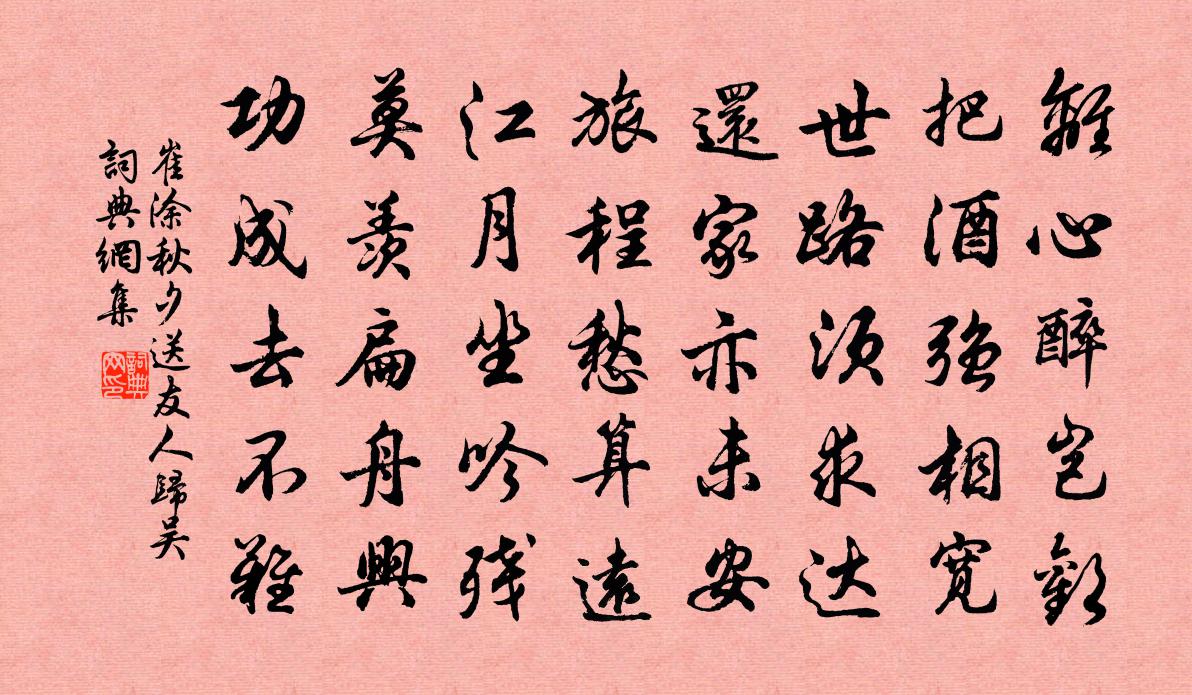 離心醉豈歡
把酒強相寬
世路須求达
還家亦未安
旅程愁算遠
江月坐吟残
莫羨扁舟興
功成去不難
崔涂秋夕送友人歸吴
詞典網集
詞典网印